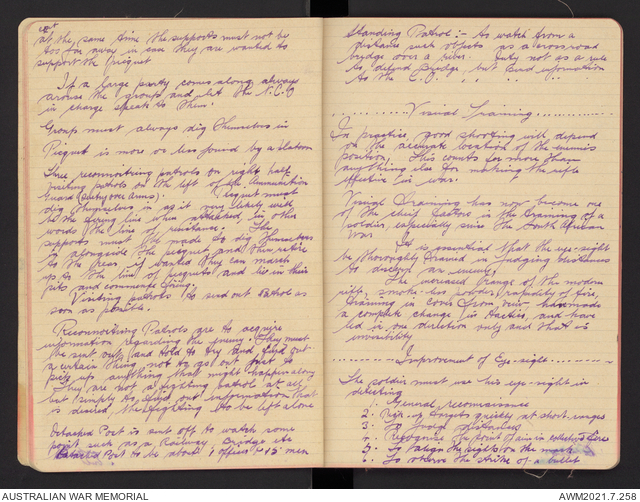 at the same time the supports must not be
too far away in case they are wanted to
support the Picquet
If a large party comes along always
arouse the group and let the N.C.O
in charge speak to them.
Groups must always dig themselves in
Picquet is more or less found by a Platoon
Three reconnoitring patrols on right half
patrols on the left of
Guard (Sentry over Arms). Picquet must
dig themselves in as it very likely will
be the firing line when attacked, in other
words the line of resistance. The
supports must be made to dig themselves
in alongside the picquet and then retire
to the rear. If wanted they can march
up to the line of picquets and lie in their
pits and commence firing.
Visiting patrols to send out patrol as
soon as possible.
Reconnoitring Patrols are to acquire
information regarding the enemy. They must
be sent out and told to try and find out
a certain thing not to go out just to
pick up anything that might happen along
They are not a fighting patrol at all
but simply to find out information that
is desired, the fighting to be left alone
Detached Post is sent off to watch some
point such as a Railway, bridge etc
Detached Post to be about 1 officer & 15 men
Standing Patrol:- To watch from a
distance such objects as a crossroad
bridge over a river. Duty not as a rule
to defend bridge but send information
to the C.O.
Visual Training
In practice, good shooting will depend
on the accurate location of the enemies
position, This counts for more than
anything else for making the rifle
effective in war.
Visual Training has now become one
of the chief factors in the training of a
soldier, especially since the South African
War
It is essential that the eye-sight
be thoroughly trained in judging distances
to discern an enemy.
The increased range of the modern
rifle, smoke-less powder, rapidity of fire,
training in cover from view has made
a complete change in tactics, and have
led in one direction only and that is
invisibility
Improvement of Eye-sight
The soldier must use his eye-sight in
detecting
1. General reconnaissance
2. Pick up targets quickly at short ranges
3. To judge distances
4. Recognise the point of aim in collective fire
5. To align the sights on the mark
6. To observe the strike of a bullet
AUSTRALIAN WAR MEMORIAL
AWM2021.7.258